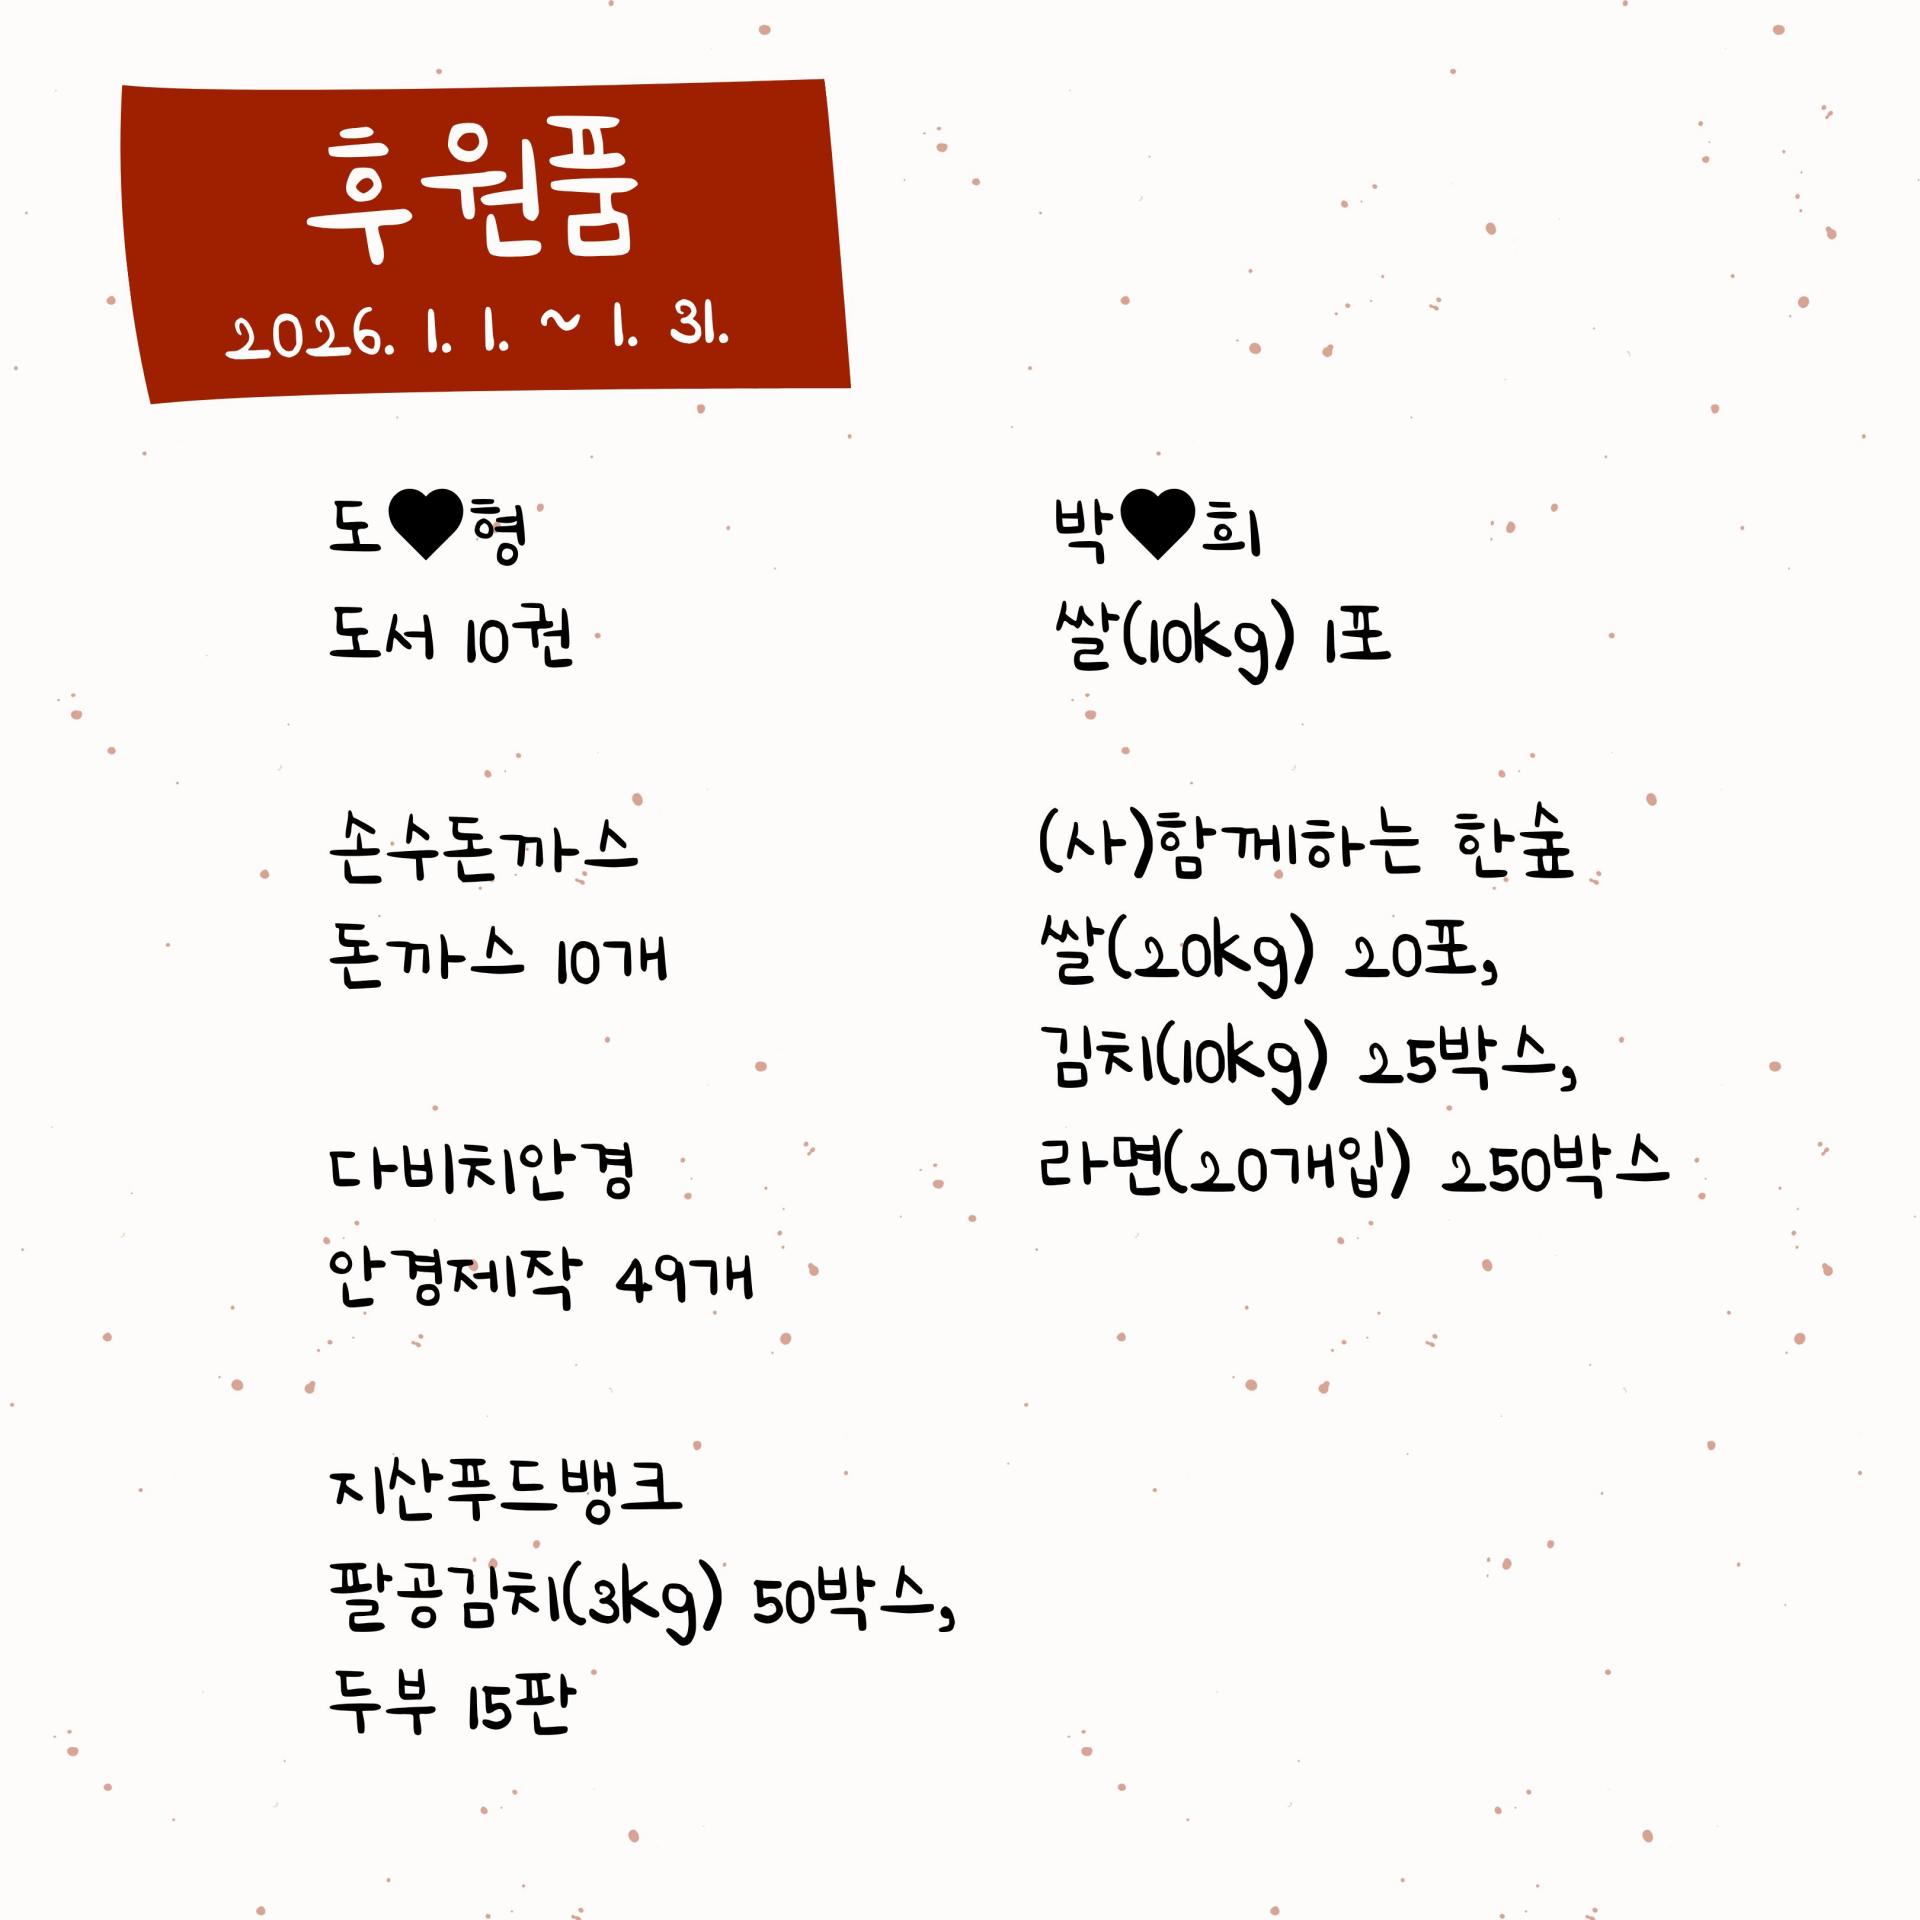 후원품
2026. 1. 1. ~ 1. 31.
도♥형
도서 10권
순수돈까스
돈까스 10개
다비치안경
안경제작 49개
지산푸드뱅크
팔공김치(3kg) 50박스,
두부 15판
박♥희
쌀(10kg) 1포
(사)함께하는 한숲
쌀(20kg) 20포,
김치(10kg) 25박스,
라면(20개입) 250박스